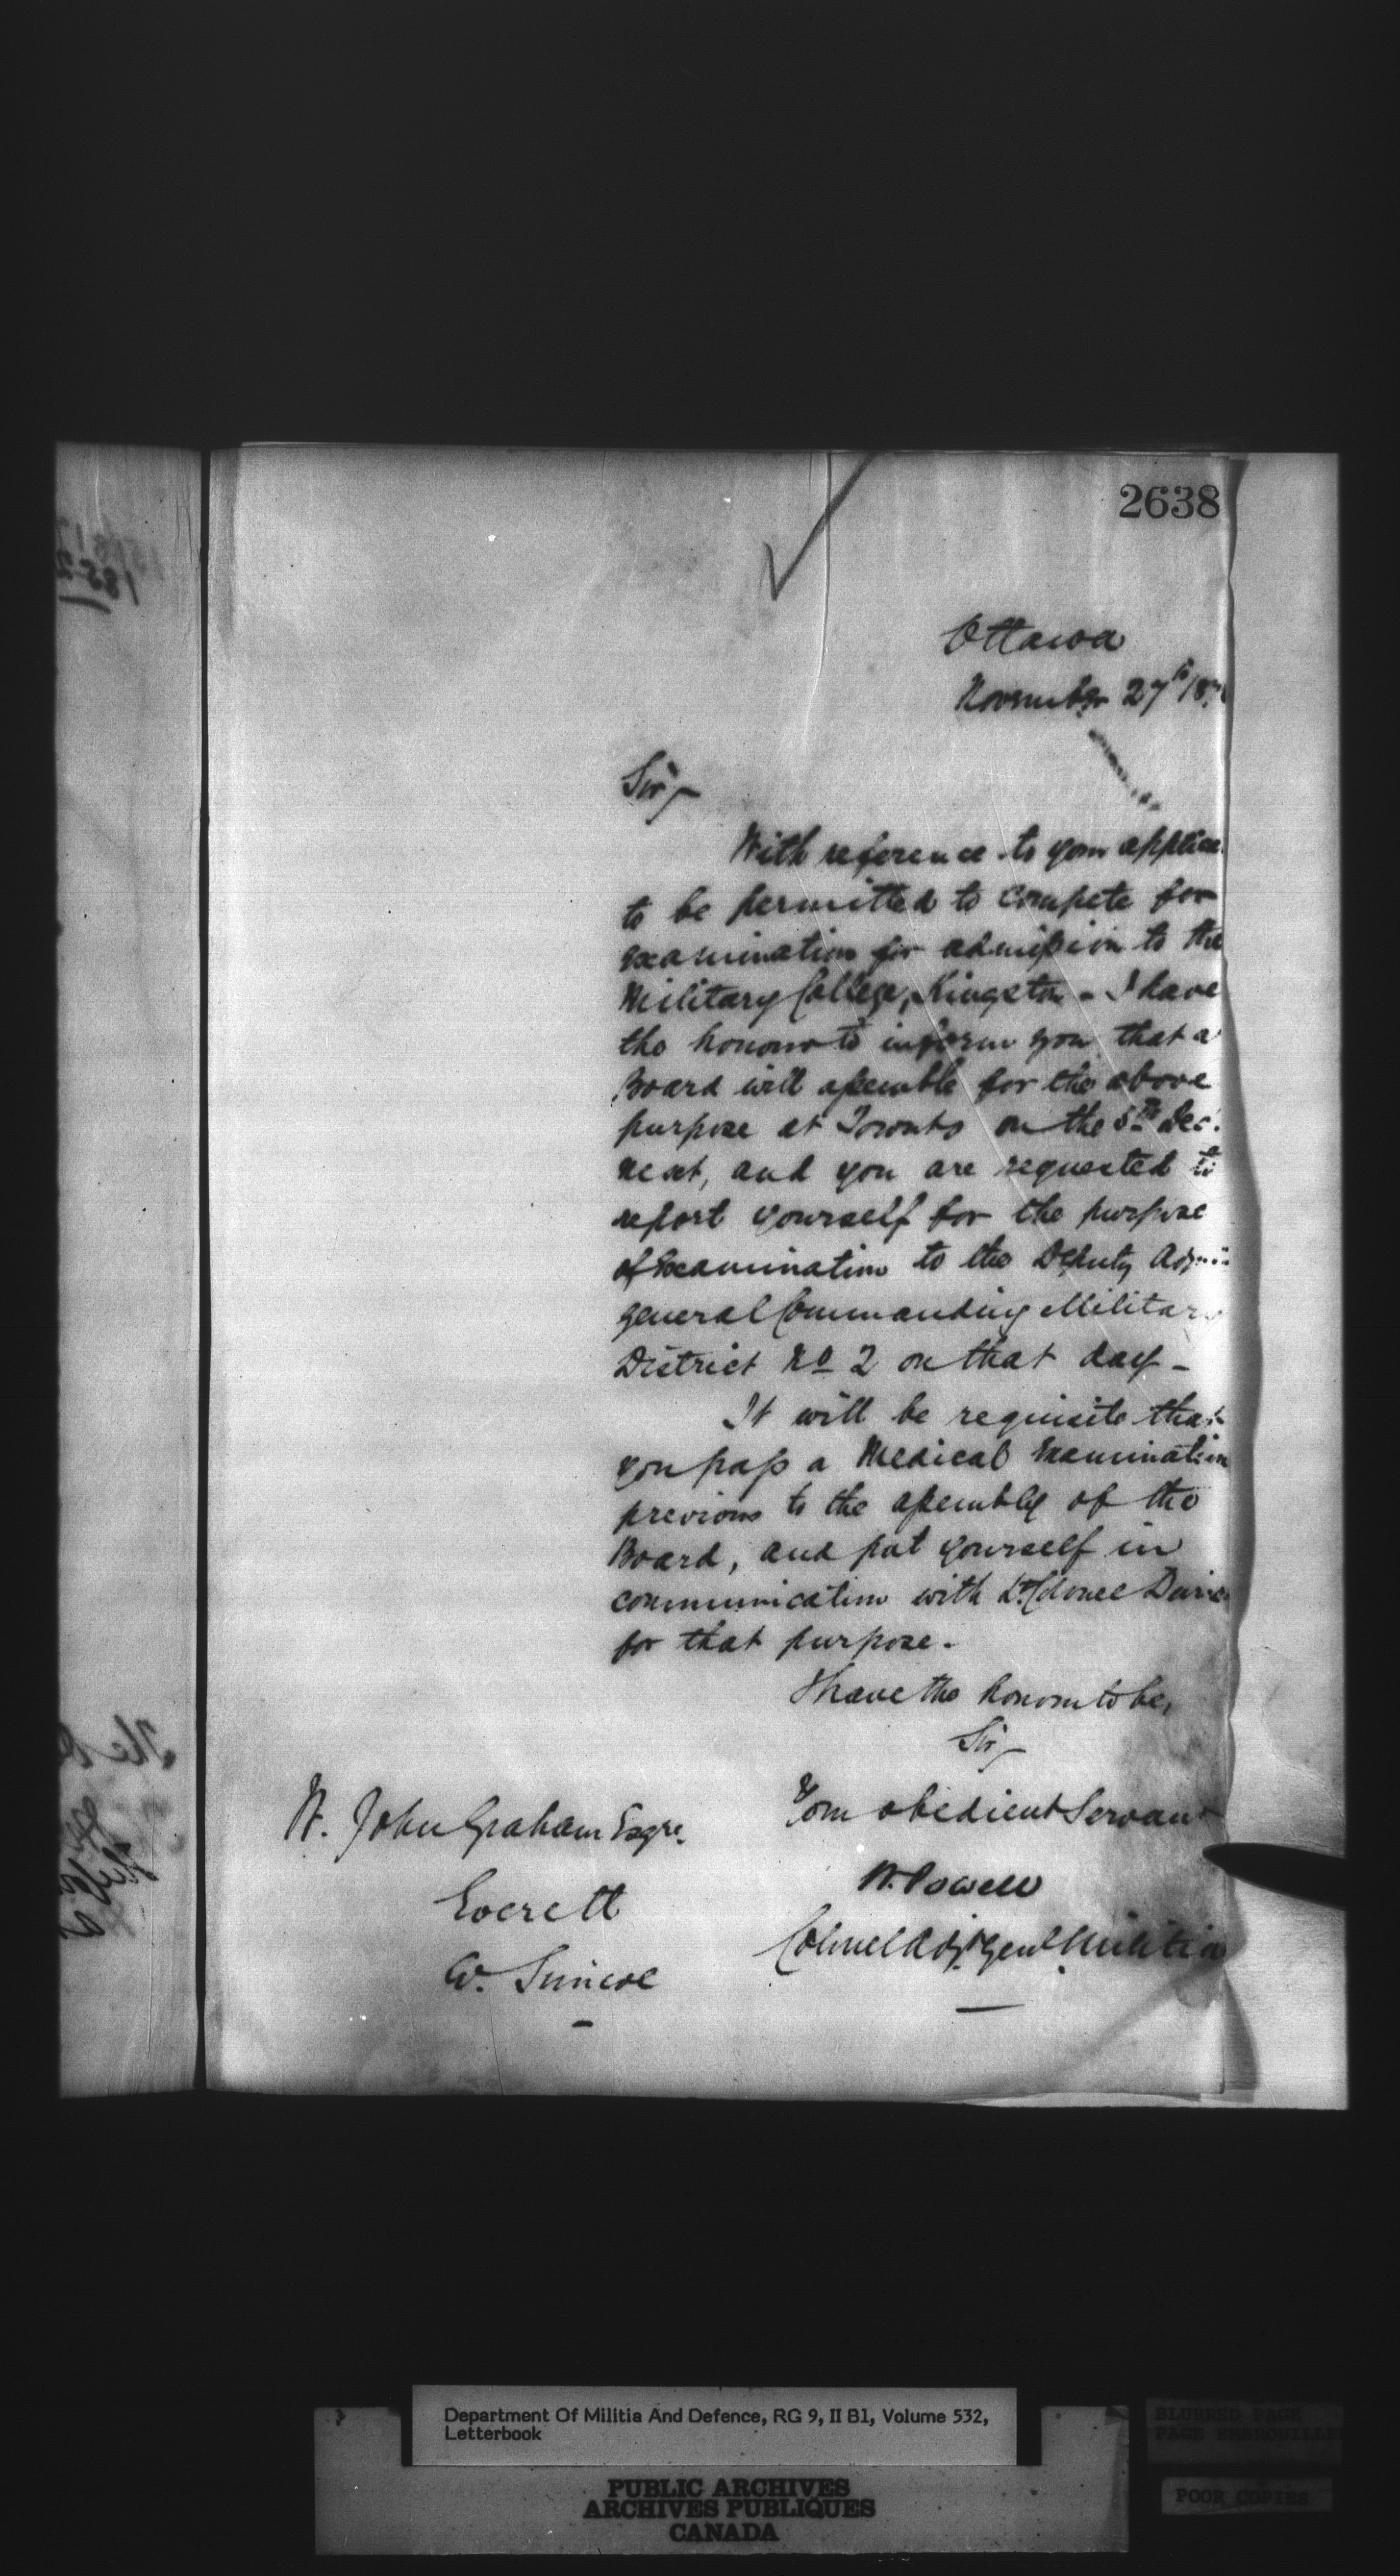 2638
Ottawa
November 27th 18
Sir,
With reference to your applica
to be permitted to compete for
examination for admission to the
Military College, Kingston - I have
the honour to inform you that a
Board will assemble for the above
purpose at Toronto on the 5th Dec.
next, and you are requested to
report yourself for the purpose
of Examination to the Deputy Adj
general Commanding Military
District No 2 on that day -
It will be requisite that
you pass a Medical Examination
previous to the assembly of the
Board, and put yourself in
communication with Lt. Colonel
for that purpose.
I have the honour to be,
Sir,
Your obedient Servant
W. Powell
Colonel Adjt. Genl. Militia
W. John Graham Esqre.
Everett
Co. Simcoe
Department Of Militia And Defence, RG 9, II B1, Volume 532,
Letterbook
PUBLIC ARCHIVES
ARCHIVES PUBLIQUES
CANADA
BLURRED PAGE
PAGE EMBROUILLE
POOR COPIES